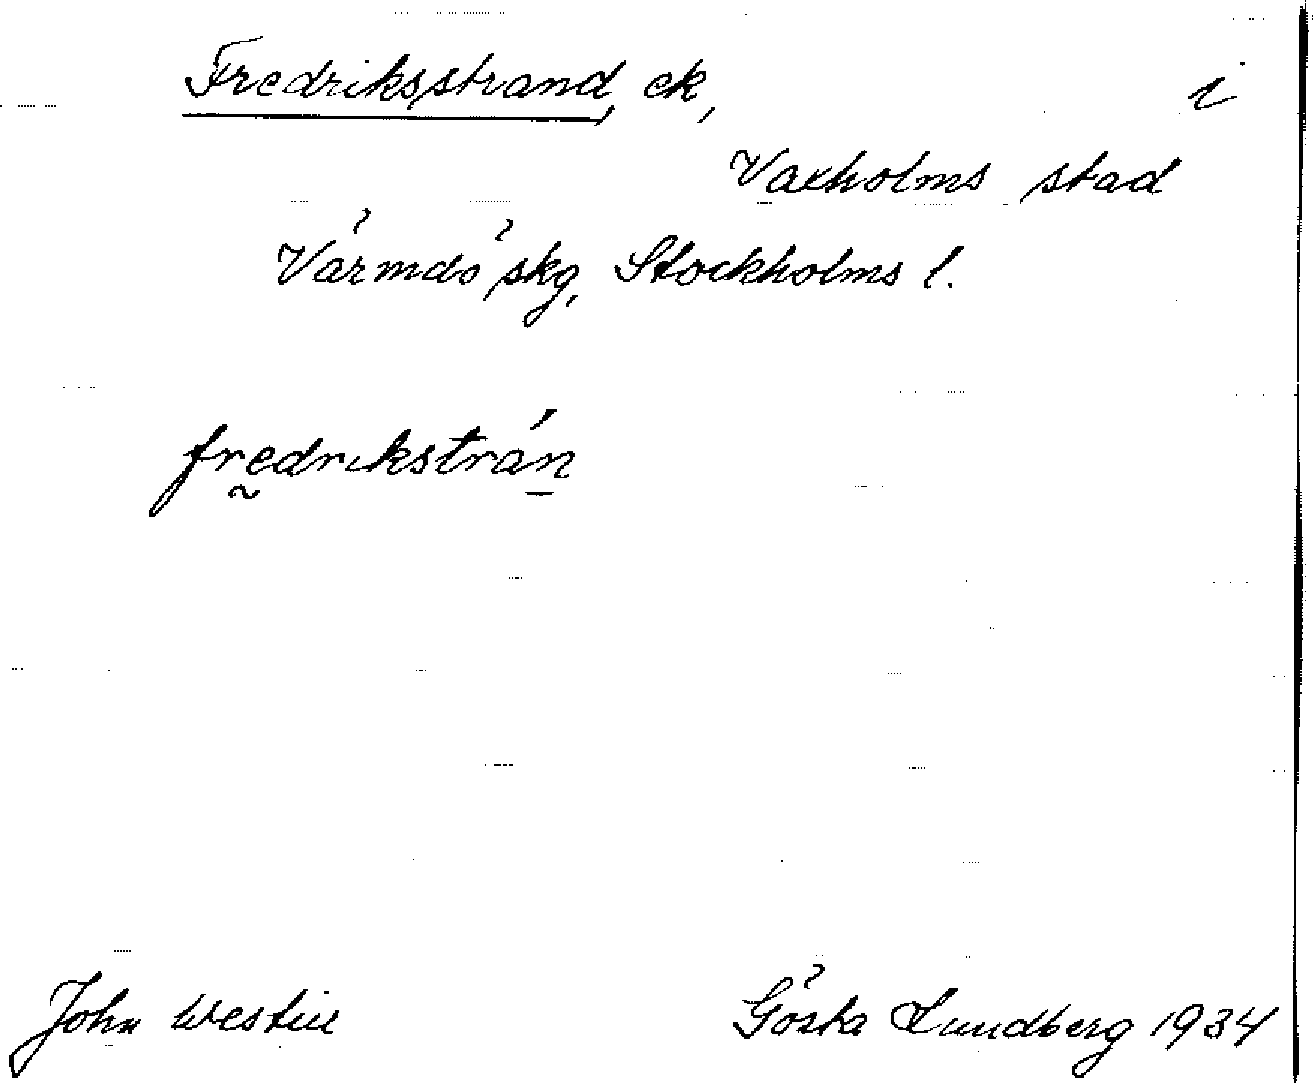 Fredriksstrand, ek, i
Vaxholms stad
Värmdö skg, Stockholms l.
fredrikstrán
John Westin Gösta Lundberg 1934